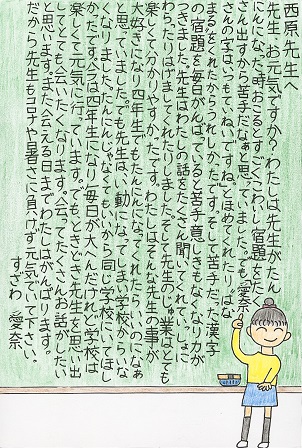 西原先生へ
先生、お元気ですか？わたしは先生がたん
にんになった時おこるとすごくこわいし宿題をたく
さん出すから苦手だなぁと思っていました。でも「愛奈
さんの字はいつもていねいですね。」とほめてくれたり、はな
まるをくれたからうれしかったです。そして苦手だった漢字
の宿題を毎日がんばっていると苦手意しきもなくなり力が
つきました。先生はわたしの話をたくさん聞いてくれていっしょに
わらったりはげましてくれたりしました。そして先生のじゅ業はとても
楽しくて分かりやすかったです。わたしはそんな先生の事が
大好きになり四年生でもたんにんになってくれたらいいのになぁ
と思っていました。でも先生はい動になってしまい学校からいな
くなりました。たんにんじゃなくてもいいから同じ学校にいてほし
かったです。今ではわたしは四年生になり毎日が大へんだけれど学校は
楽しくて元気に行っています。でも、ときどき先生を思い出
してとても会いたくなります。会ってたくさんお話がしたい
と思います。また会える日までわたしはがんばります。
だから先生もコロナや暑さに負けず元気でいて下さい。
すざわ 愛奈